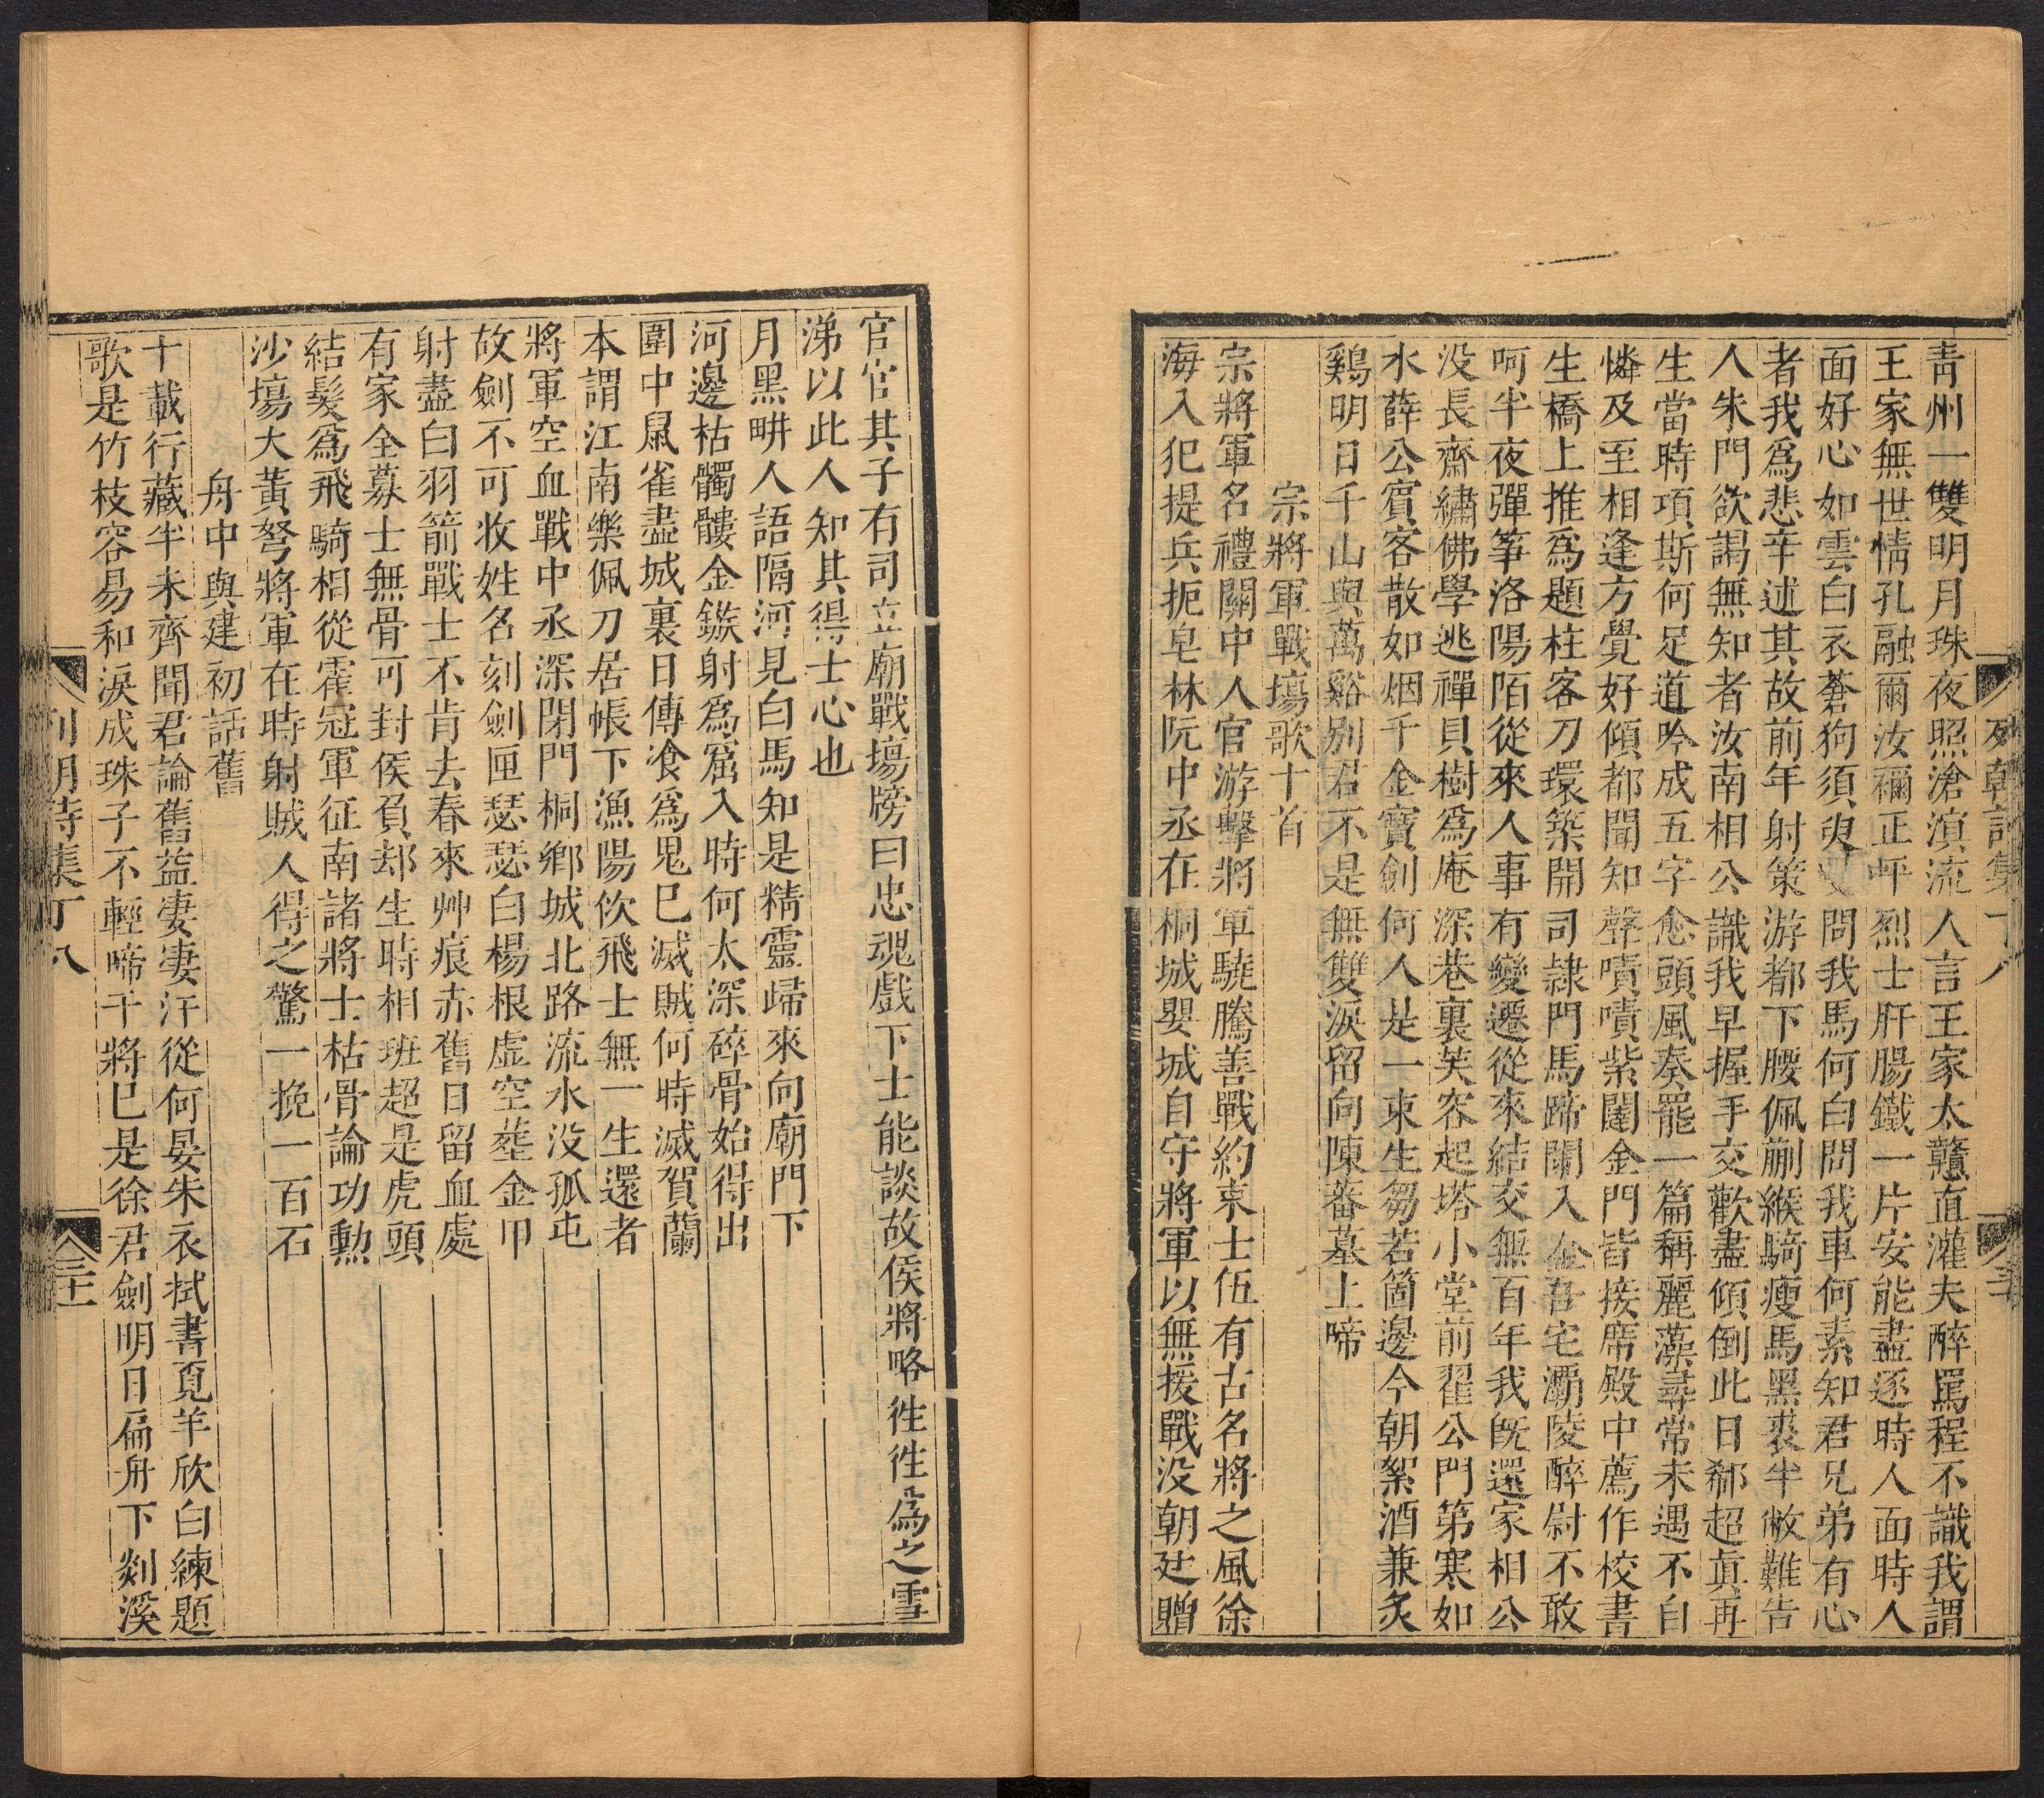 青州一雙明月珠夜照滄演流人言王家太戇直灌夫醉罵程不識我謂
王家無世情孔融爾汝禰正平烈士肝腸鐵一片安能盡逐時人面時人
面好心如雲白衣蒼狗須臾問我馬何白問我車何素知君兄弟有心
者我爲悲辛述其故前年射策游都下腰佩蒯緱騎瘦馬黑裘半敝難告
人朱門欲謁無知者汝南相公識我早握手交歡盡傾倒此日郗超眞再
生當時項斯何足道吟成五字愈頭風奏罷一篇稱麗藻尋常未遇不自
憐及至相逢方覺好傾都聞知聲嘖嘖紫闥金門皆接席殿中薦作校書
生橋上推爲題柱客刀環築開司隷門馬蹄關入金吾宅灞陵醉尉不敢
呵半夜彈筝洛陽陌從來人事有變遷從來結交無百年我旣還家相公
没長齋繡佛學逃禪貝樹爲庵深巷裏芙容起塔小堂前翟公門第寒如
水薛公賓客散如烟千金寶劍何人是一束生芻若箇邊今朝絮酒兼炙
鷄明日千山與萬谿別君不是無雙淚留向陳蕃墓上啼
宗將軍戰塲歌十首
宗將軍名禮關中人官游擊將軍驍騰善戰約束士伍有古名將之風徐
海入犯提兵扼皂林阮中丞在桐城嬰城自守將軍以無援戰没朝廷贈
列朝詩集丁八
官官其子有司立廟戰塲牓曰忠魂戲下士能談故侯將略徃徃爲之雪
涕以此人知其得士心也
月黑畊人語隔河見白馬知是精靈歸來向廟門下
河邊枯髑髏金鏃射爲窟入時何太深碎骨始得出
圍中鼠雀盡城裏日傳飡爲鬼巳滅賊何時滅賀蘭
本謂江南樂佩刀居帳下漁陽佽飛士無一生還者
將軍空血戰中丞深閉門桐鄉城北路流水没孤屯
故劍不可收姓名刻劍匣瑟瑟白楊根虛空塟金甲
射盡白羽箭戰士不肯去春來艸痕赤舊日留血處
有家全募士無骨可封侯負却生時相班超是虎頭
結髮爲飛騎相從霍冠軍征南諸將士枯骨論功勳
沙塲大黃弩將軍在時射賊人得之驚一挽一百石
舟中與建初話舊
十載行藏半未齊聞君論舊益凄凄汗從何晏朱衣拭書覓羊欣白練題
歌是竹枝容易和淚成珠子不輕啼干將巳是徐君劍明日扁舟下剡溪
列朝詩集丁八
三十一